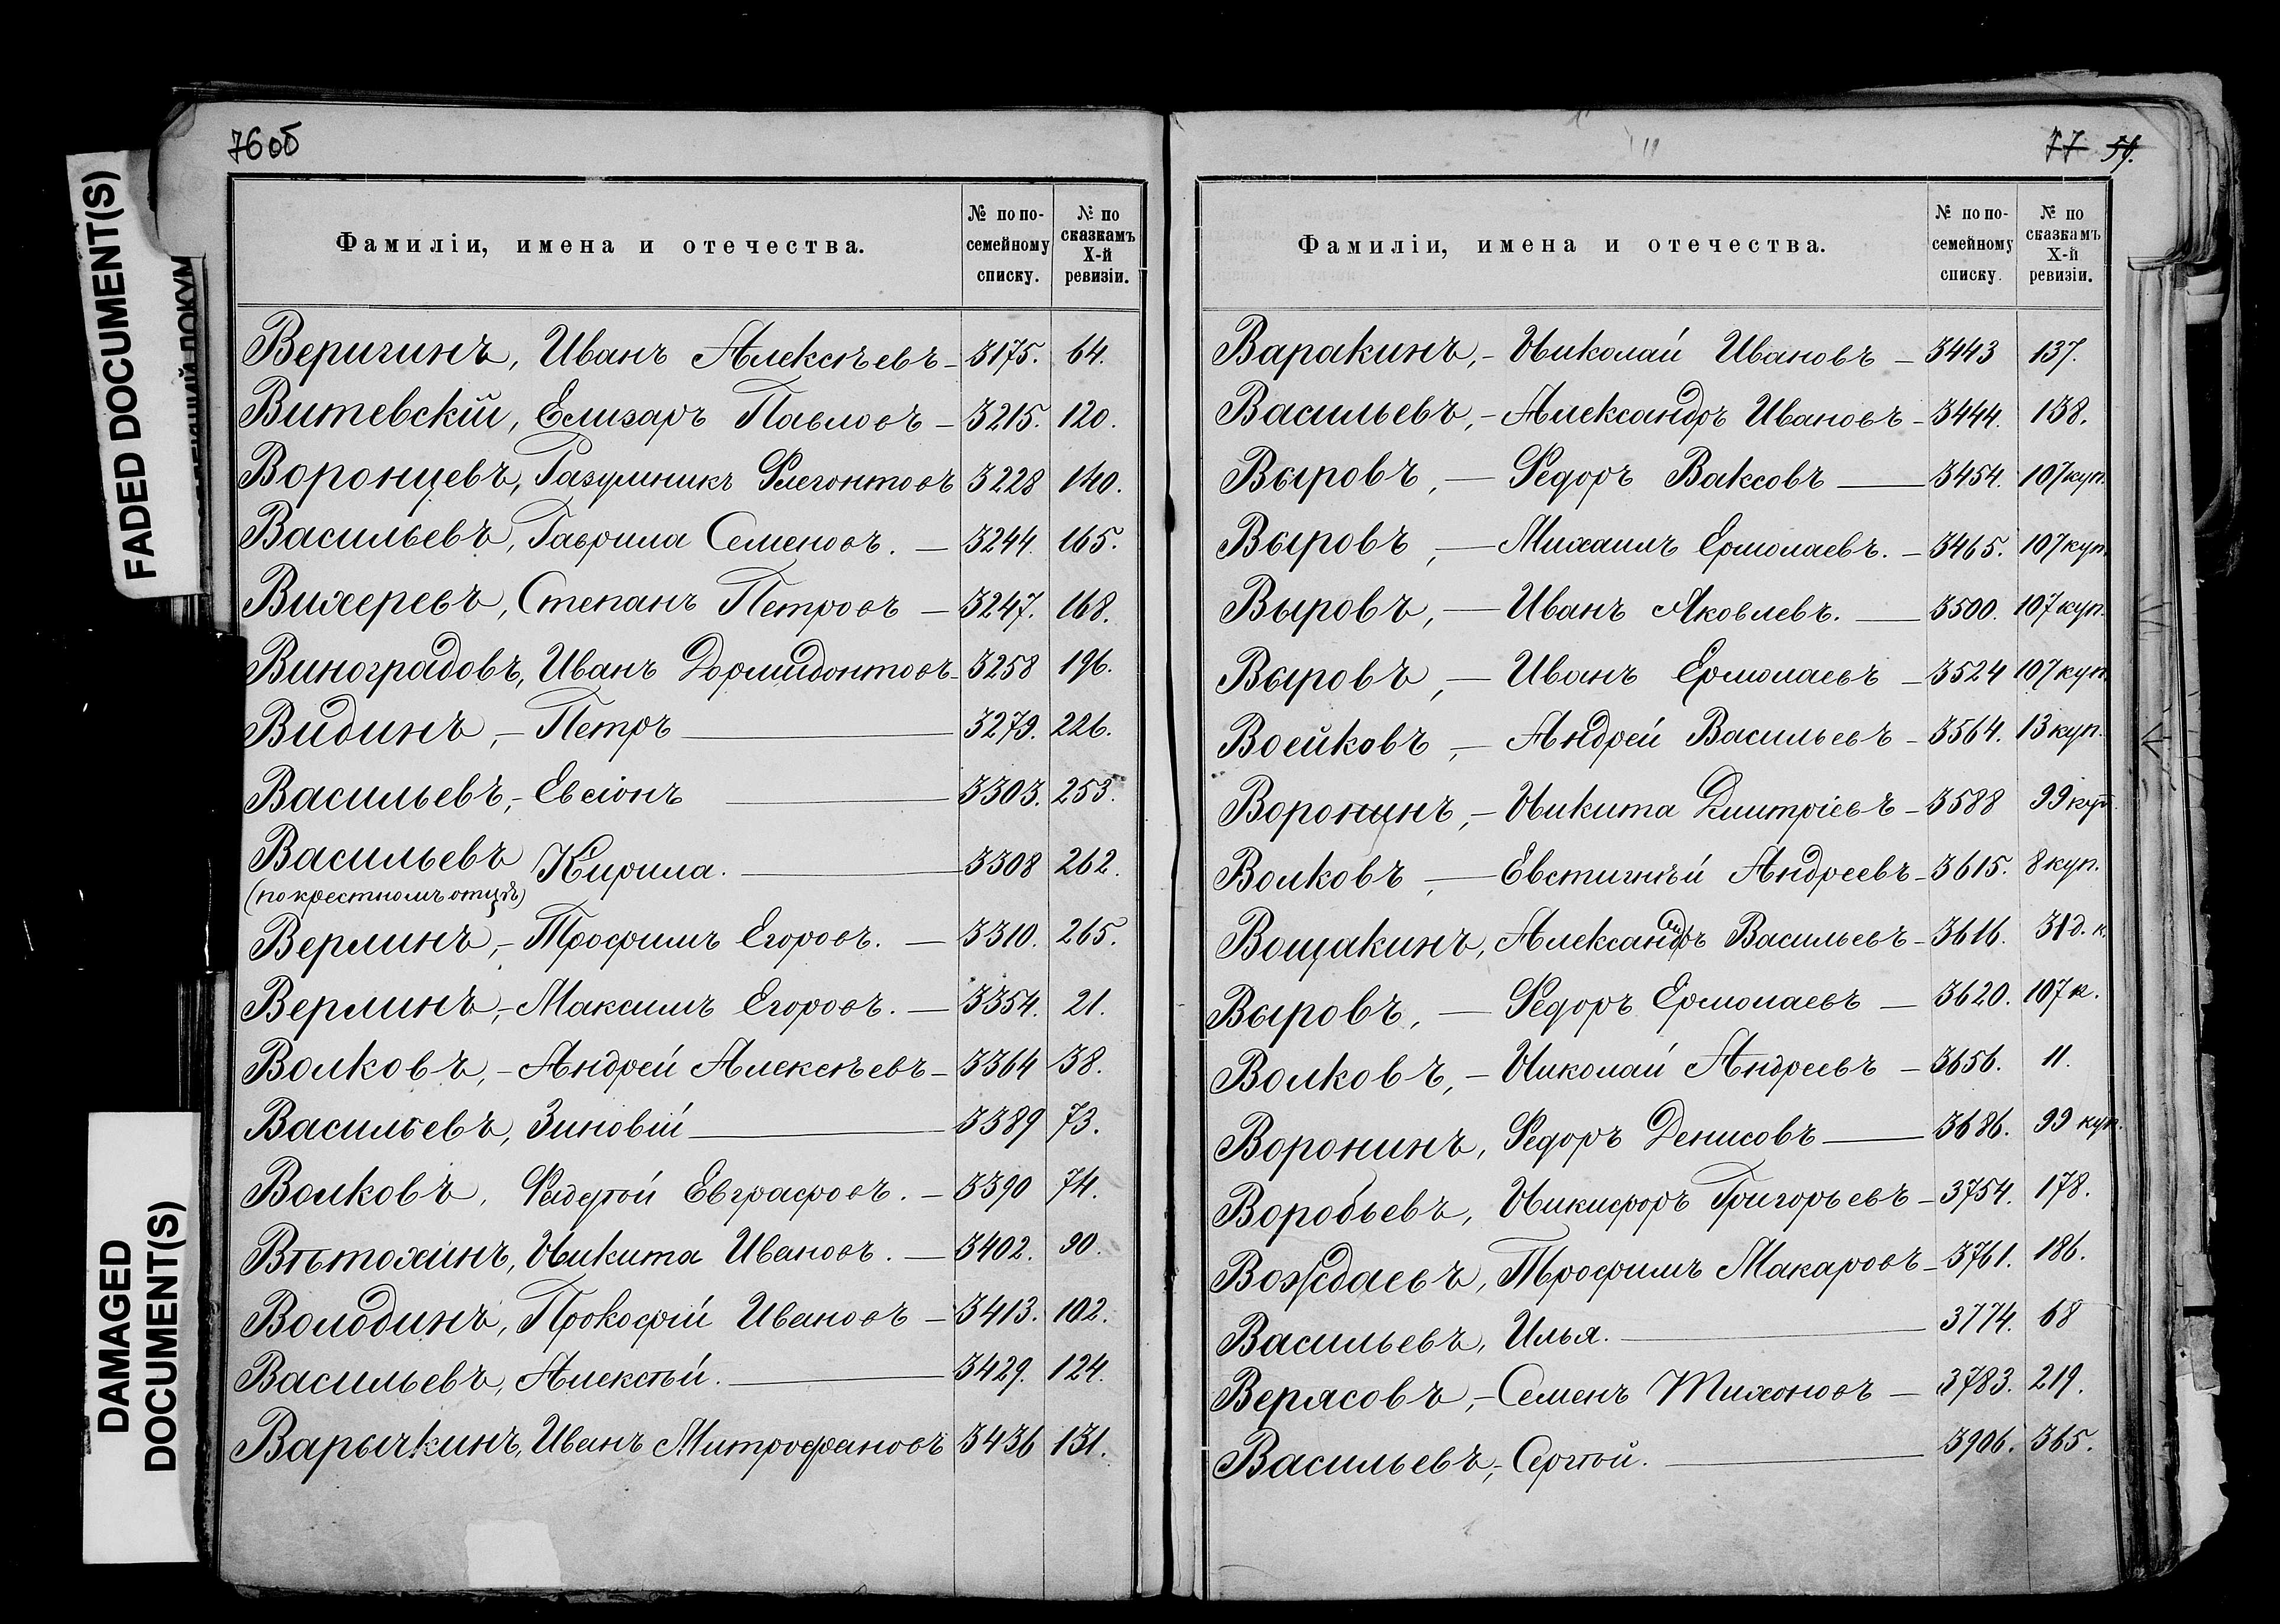 76 об
FADED DOCUMENT(S)
DAMAGED
DOCUMENT(S)
Фамиліи, имена и отечества.
№ по по-
семейному
списку.
№ по
сказкамъ
X-й
ревизіи.
Веригинъ, Иванъ Алексѣевъ - 3175. 64.
Витевскій, Елизаръ Павловъ - 3215. 120.
Воронцевъ, Разумникъ Флегонтовъ 3228 140.
Васильевъ, Гаврила Семеновъ. - 3244. 165.
Вихеревъ, Степанъ Петровъ - 3247. 168.
Виноградовъ, Иванъ Дормидонтовъ - 3258 196.
Видинъ, - Петръ — 3279. 226.
Васильевъ, - Евсіонъ — 3303. 253.
Васильевъ Кирила. — 3308 262.
(по крестномъ отцѣ)
Верлинъ, - Трофимъ Егоровъ. — 3310. 265.
Верлинъ, - Максимъ Егоровъ. — 3354. 21.
Волковъ, - Андрей Алексѣевъ - 3364 38.
Васильевъ, Зиновій — 3389 73.
Волковъ, Фадѣй Евграфовъ. - 3390 74.
Вѣтохинъ, Никита Ивановъ. - 3402. 90.
Володинъ, Прокофій Ивановъ - 3413. 102.
Васильевъ, Алексѣй. — 3429. 124.
Варычкинъ, Иванъ Митрофановъ 3436 131.
77 59.
Фамиліи, имена и отечества.
№ по по-
семейному
списку.
№ по
сказкамъ
X-й
ревизіи.
Варакинъ, - Николай Ивановъ - 3443 137.
Васильевъ, - Александръ Ивановъ - 3444. 138.
Выровъ, — Федоръ Ваксовъ — 3454. 107 куп.
Выровъ, — Михаилъ Ермолаевъ. - 3465. 107 куп.
Выровъ, — Иванъ Яковлевъ. — 3500. 107 куп.
Выровъ, — Иванъ Ермолаевъ - 3524 107 куп.
Воейковъ, - Андрей Васильевъ - 3564. 13 куп.
Воронинъ, - Никита Дмитріевъ - 3588 99 куп.
Волковъ, — Евстигнѣй Андреевъ - 3615. 8 куп.
Вощакинъ, Александръ Васильевъ - 3616. 31 д. к.
Выровъ, — Федоръ Ермолаевъ — 3620. 107 к.
Волковъ, - Николай Андреевъ - 3656. 11.
Воронинъ, Федоръ Денисовъ — 3686. 99 куп.
Воробьевъ, Никифоръ Григорьевъ - 3754. 178.
Вождаевъ, Трофимъ Макаровъ - 3761. 186.
Васильевъ, Илья. — 3774. 68
Верясовъ, - Семенъ Тихоновъ — 3783. 219.
Васильевъ, - Сергѣй. — 3906. 365.